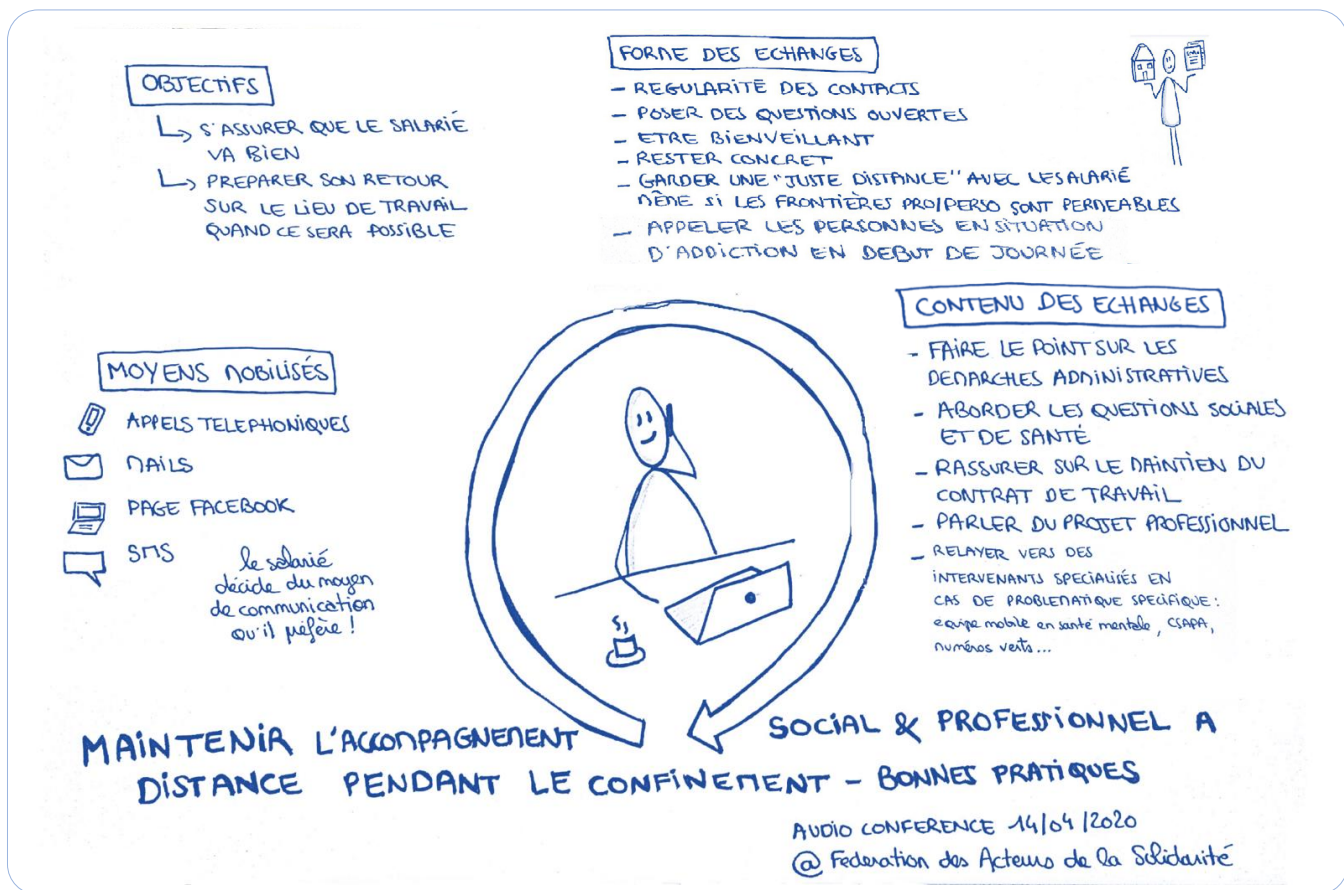 OBJECTIFS
S'ASSURER QUE LE SALARIÉ
VA BIEN
PREPARER SON RETOUR
SUR LE LIEU DE TRAVAIL
QUAND CE SERA POSSIBLE
FORME DES ECHANGES
- REGULARITÉ DES CONTACTS
- POSER DES QUESTIONS OUVERTES
- ETRE BIENVEILLANT
- RESTER CONCRET
- GARDER UNE "JUSTE DISTANCE" AVEC LE SALARIÉ
MÊME SI LES FRONTIÈRES PRO/PERSO SONT PERMEABLES
- APPELER LES PERSONNES EN SITUATION
D'ADDICTION EN DEBUT DE JOURNÉE
MOYENS MOBILISÉS
APPELS TELEPHONIQUES
MAILS
PAGE FACEBOOK
SMS
le salarié
décide du moyen
de communication
qu'il préfère !
CONTENU DES ECHANGES
- FAIRE LE POINT SUR LES
DEMARCHES ADMINISTRATIVES
- ABORDER LES QUESTIONS SOCIALES
ET DE SANTÉ
- RASSURER SUR LE MAINTIEN DU
CONTRAT DE TRAVAIL
- PARLER DU PROJET PROFESSIONNEL
- RELAYER VERS DES
INTERVENANTS SPECIALISÉS EN
CAS DE PROBLEMATIQUE SPECIFIQUE :
equipe mobile en santé mentale, CSAPA,
numéros verts...
MAINTENIR L'ACCOMPAGNEMENT SOCIAL & PROFESSIONNEL A
DISTANCE PENDANT LE CONFINEMENT - BONNES PRATIQUES
AUDIO CONFERENCE 14/04/2020
@ Federation des Acteurs de la Solidarité